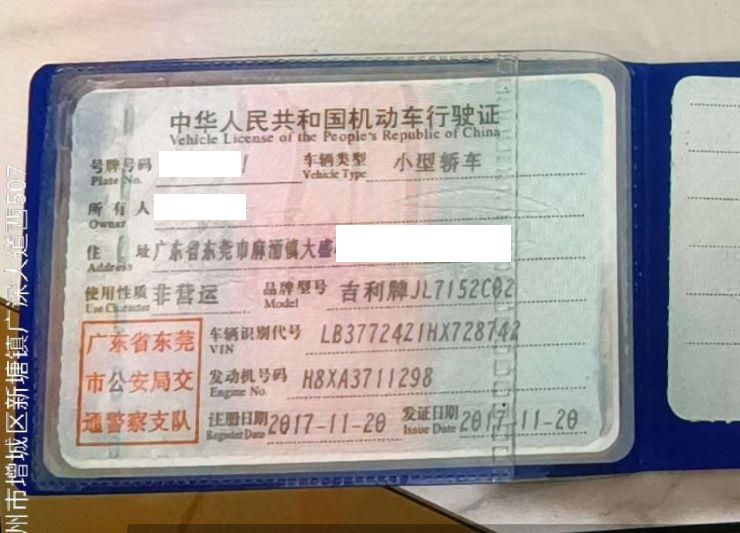 中华人民共和国机动车行驶证
Vehicle License of the People's Republic of China
号牌号码
Plate No.
车辆类型 小型轿车
Vehicle Type
所有人
Owner
住址 广东省东莞市麻涌镇大盛
Address
使用性质 非营运
Use Character
品牌型号 吉利牌JL7152C02
Model
车辆识别代号 LB37724Z1HX728742
VIN
发动机号码 H8XA3711298
Engine No.
注册日期 2017-11-20
Register Date
发证日期 2017-11-20
Issue Date
广东省东莞
市公安局交
通警察支队
州市增城区新塘镇广深大道西507